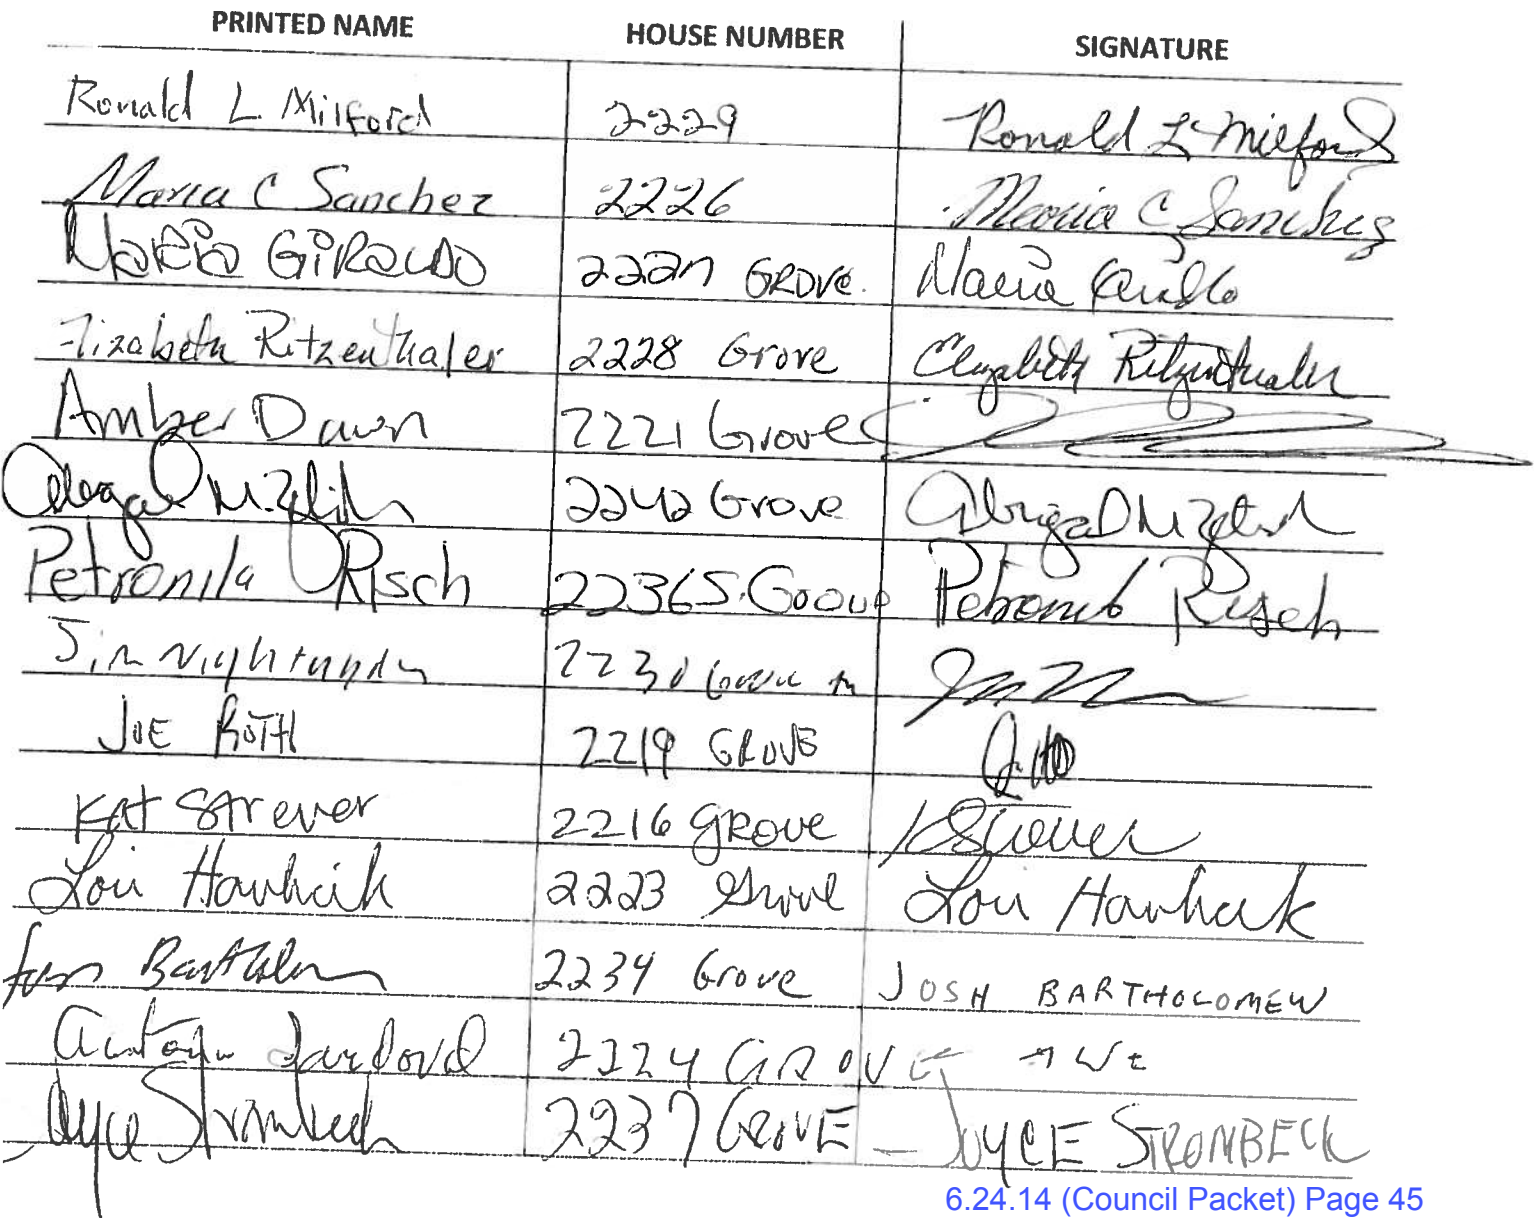 PRINTED NAME HOUSE NUMBER SIGNATURE
Ronald L Milford 2229 Ronald L Milford
Maria C Sanchez 2226 Maria C Sanchez
MARIA GIRALDO 2227 GROVE. Maria
Elizabeth Ritzenthaler 2228 Grove Elizabeth Ritzenthaler
Amber Dawn 2221 Grove
2242 Grove Abigail
Petronila Risch 2236 S. Petronila Risch
Jim 2230
JOE ROTH 2219 GROVE
KAt Strever 2216 GROVE KStrever
Lori 2223 Grove Lori
Bartholomew 2234 Grove JOSH BARTHOLOMEW
Sandoval 2224 GROVE AVE
Joyce Strombeck 2237 GROVE - JOYCE STROMBECK
6.24.14 (Council Packet) Page 45